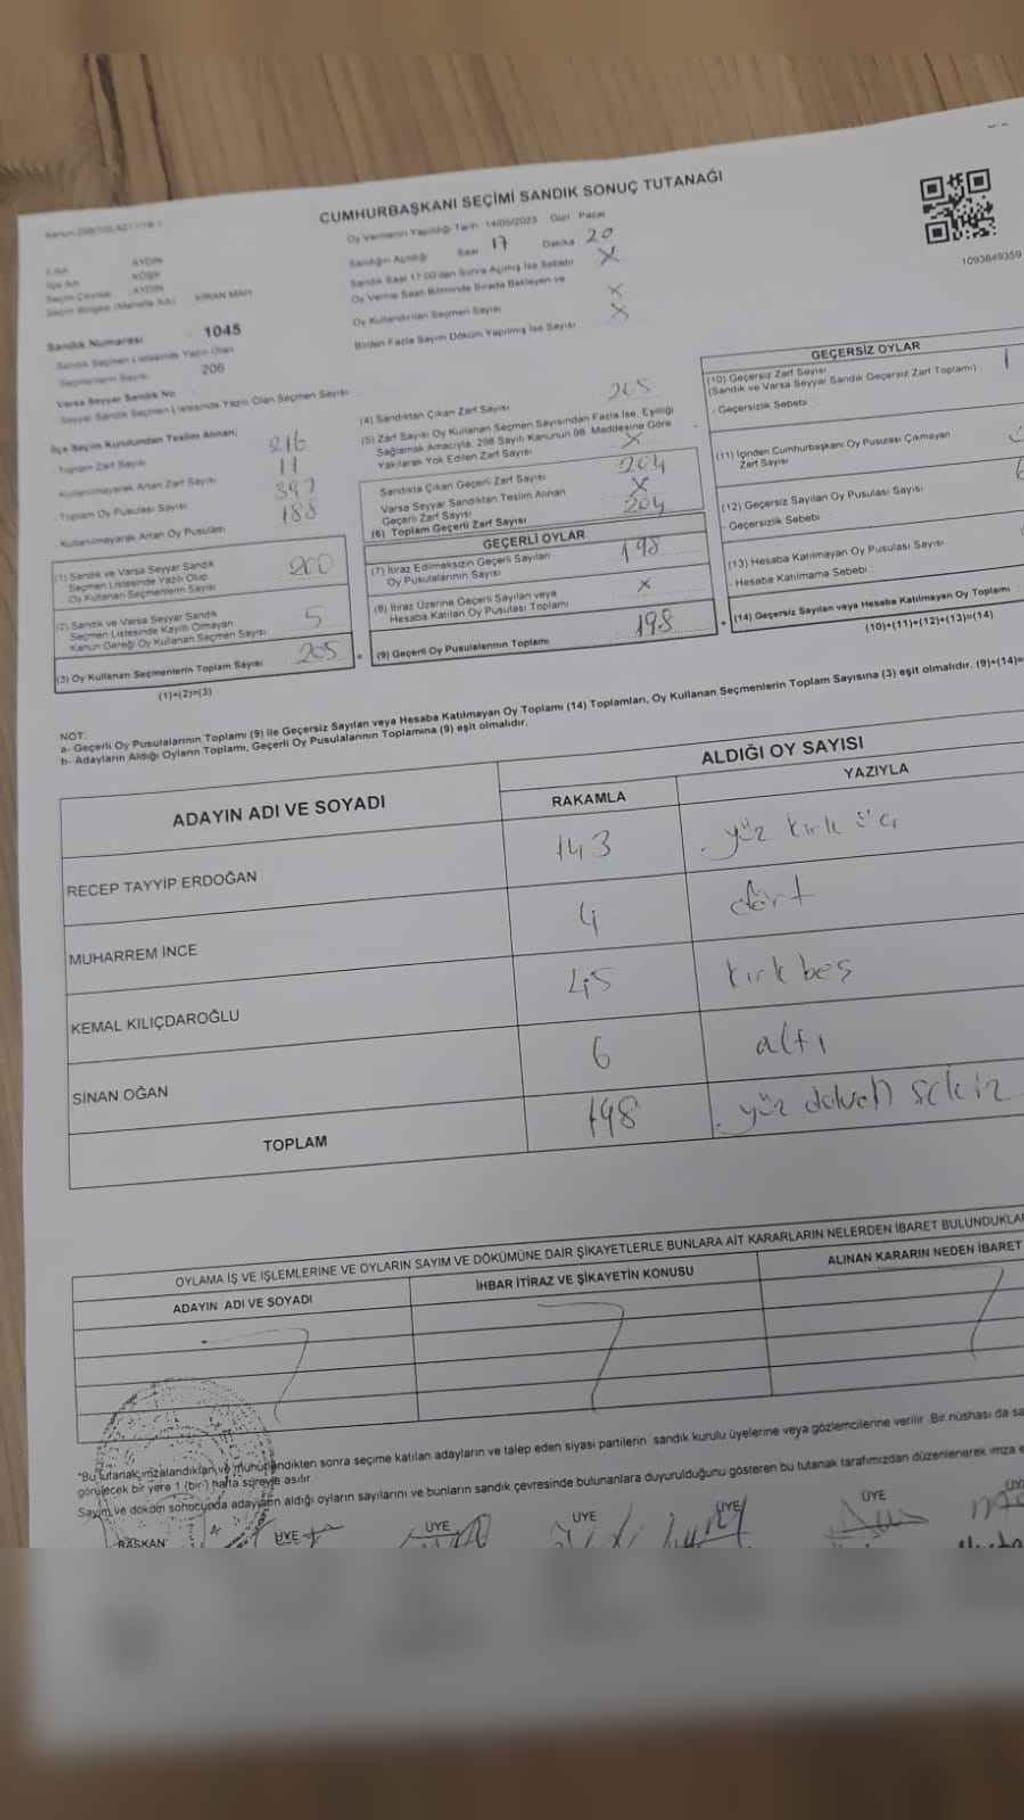 CUMHURBAŞKANI SEÇİMİ SANDIK SONUÇ TUTANAĞI
Oy Vermenin Yapıldığı Tarih 14/05/2023 Gün Pazar
Sandığın Açıldığı Saat 17 Dakika 20
Sandık Saat 17:00'den Sonra Açılmış İse Sebebi X
Oy Verme Saati Bitiminde Sırada Bekleyen ve
Oy Kullandırılan Seçmen Sayısı X
Birden Fazla Sayım Döküm Yapılmış İse Sayısı X
1093849359
AYDIN
KÖŞK
AYDIN
KIRAN MAH
Sandık Numarası 1045
Sandık Seçmen Listesinde Yazılı Olan
Seçmenlerin Sayısı 206
Varsa Seyyar Sandık No
Seyyar Sandık Seçmen Listesinde Yazılı Olan Seçmen Sayısı
İlçe Seçim Kurulundan Teslim Alınan;
Toplam Zarf Sayısı 216
Kullanılmayarak Artan Zarf Sayısı 11
Toplam Oy Pusulası Sayısı
Kullanılmayarak Artan Oy Pusulası 188
(1) Sandık ve Varsa Seyyar Sandık
Seçmen Listesinde Yazılı Olup
Oy Kullanan Seçmenlerin Sayısı 200
(2) Sandık ve Varsa Seyyar Sandık
Seçmen Listesinde Kayıtlı Olmayan
Kanun Gereği Oy Kullanan Seçmen Sayısı 5
(3) Oy Kullanan Seçmenlerin Toplam Sayısı 205
(1)+(2)=(3)
(4) Sandıktan Çıkan Zarf Sayısı 205
(5) Zarf Sayısı Oy Kullanan Seçmen Sayısından Fazla İse, Eşitliği
Sağlamak Amacıyla, 298 Sayılı Kanunun 98. Maddesine Göre
Yakılarak Yok Edilen Zarf Sayısı X
Sandıkta Çıkan Geçerli Zarf Sayısı 204
Varsa Seyyar Sandıktan Teslim Alınan
Geçerli Zarf Sayısı X
(6) Toplam Geçerli Zarf Sayısı 204
GEÇERLİ OYLAR
(7) İtiraz Edilmeksizin Geçerli Sayılan
Oy Pusulalarının Sayısı 198
(8) İtiraz Üzerine Geçerli Sayılan veya
Hesaba Katılan Oy Pusulası Toplamı X
(9) Geçerli Oy Pusulalarının Toplamı 198
GEÇERSİZ OYLAR
(10) Geçersiz Zarf Sayısı
(Sandık ve Varsa Seyyar Sandık Geçersiz Zarf Toplamı) 1
- Geçersizlik Sebebi
(11) İçinden Cumhurbaşkanı Oy Pusulası Çıkmayan
Zarf Sayısı
(12) Geçersiz Sayılan Oy Pusulası Sayısı
- Geçersizlik Sebebi
(13) Hesaba Katılmayan Oy Pusulası Sayısı
- Hesaba Katılmama Sebebi
(14) Geçersiz Sayılan veya Hesaba Katılmayan Oy Toplamı
(10)+(11)+(12)+(13)=(14)
NOT:
a- Geçerli Oy Pusulalarının Toplamı (9) ile Geçersiz Sayılan veya Hesaba Katılmayan Oy Toplamı (14) Toplamları, Oy Kullanan Seçmenlerin Toplam Sayısına (3) eşit olmalıdır. (9)+(14)=
b- Adayların Aldığı Oyların Toplamı, Geçerli Oy Pusulalarının Toplamına (9) eşit olmalıdır.
ADAYIN ADI VE SOYADI
ALDIĞI OY SAYISI
RAKAMLA YAZIYLA
RECEP TAYYİP ERDOĞAN 143 yüz kırk üç
MUHARREM İNCE 4 dört
KEMAL KILIÇDAROĞLU 45 kırk beş
SİNAN OĞAN 6 altı
TOPLAM 198 yüz doksan sekiz
OYLAMA İŞ VE İŞLEMLERİNE VE OYLARIN SAYIM VE DÖKÜMÜNE DAİR ŞİKAYETLERLE BUNLARA AİT KARARLARIN NELERDEN İBARET BULUNDUKLA
ADAYIN ADI VE SOYADI
İHBAR İTİRAZ VE ŞİKAYETİN KONUSU
ALINAN KARARIN NEDEN İBARET
"Bu tutanak imzalandıktan ve mühürlendikten sonra seçime katılan adayların ve talep eden siyasi partilerin sandık kurulu üyelerine veya gözlemcilerine verilir. Bir nüshası da sa
görülecek bir yere 1 (bir) hafta süreyle asılır.
Sayım ve döküm sonucunda adayların aldığı oyların sayılarını ve bunların sandık çevresinde bulunanlara duyurulduğunu gösteren bu tutanak tarafımızdan düzenlenerek imza
BAŞKAN ÜYE ÜYE ÜYE ÜYE ÜYE